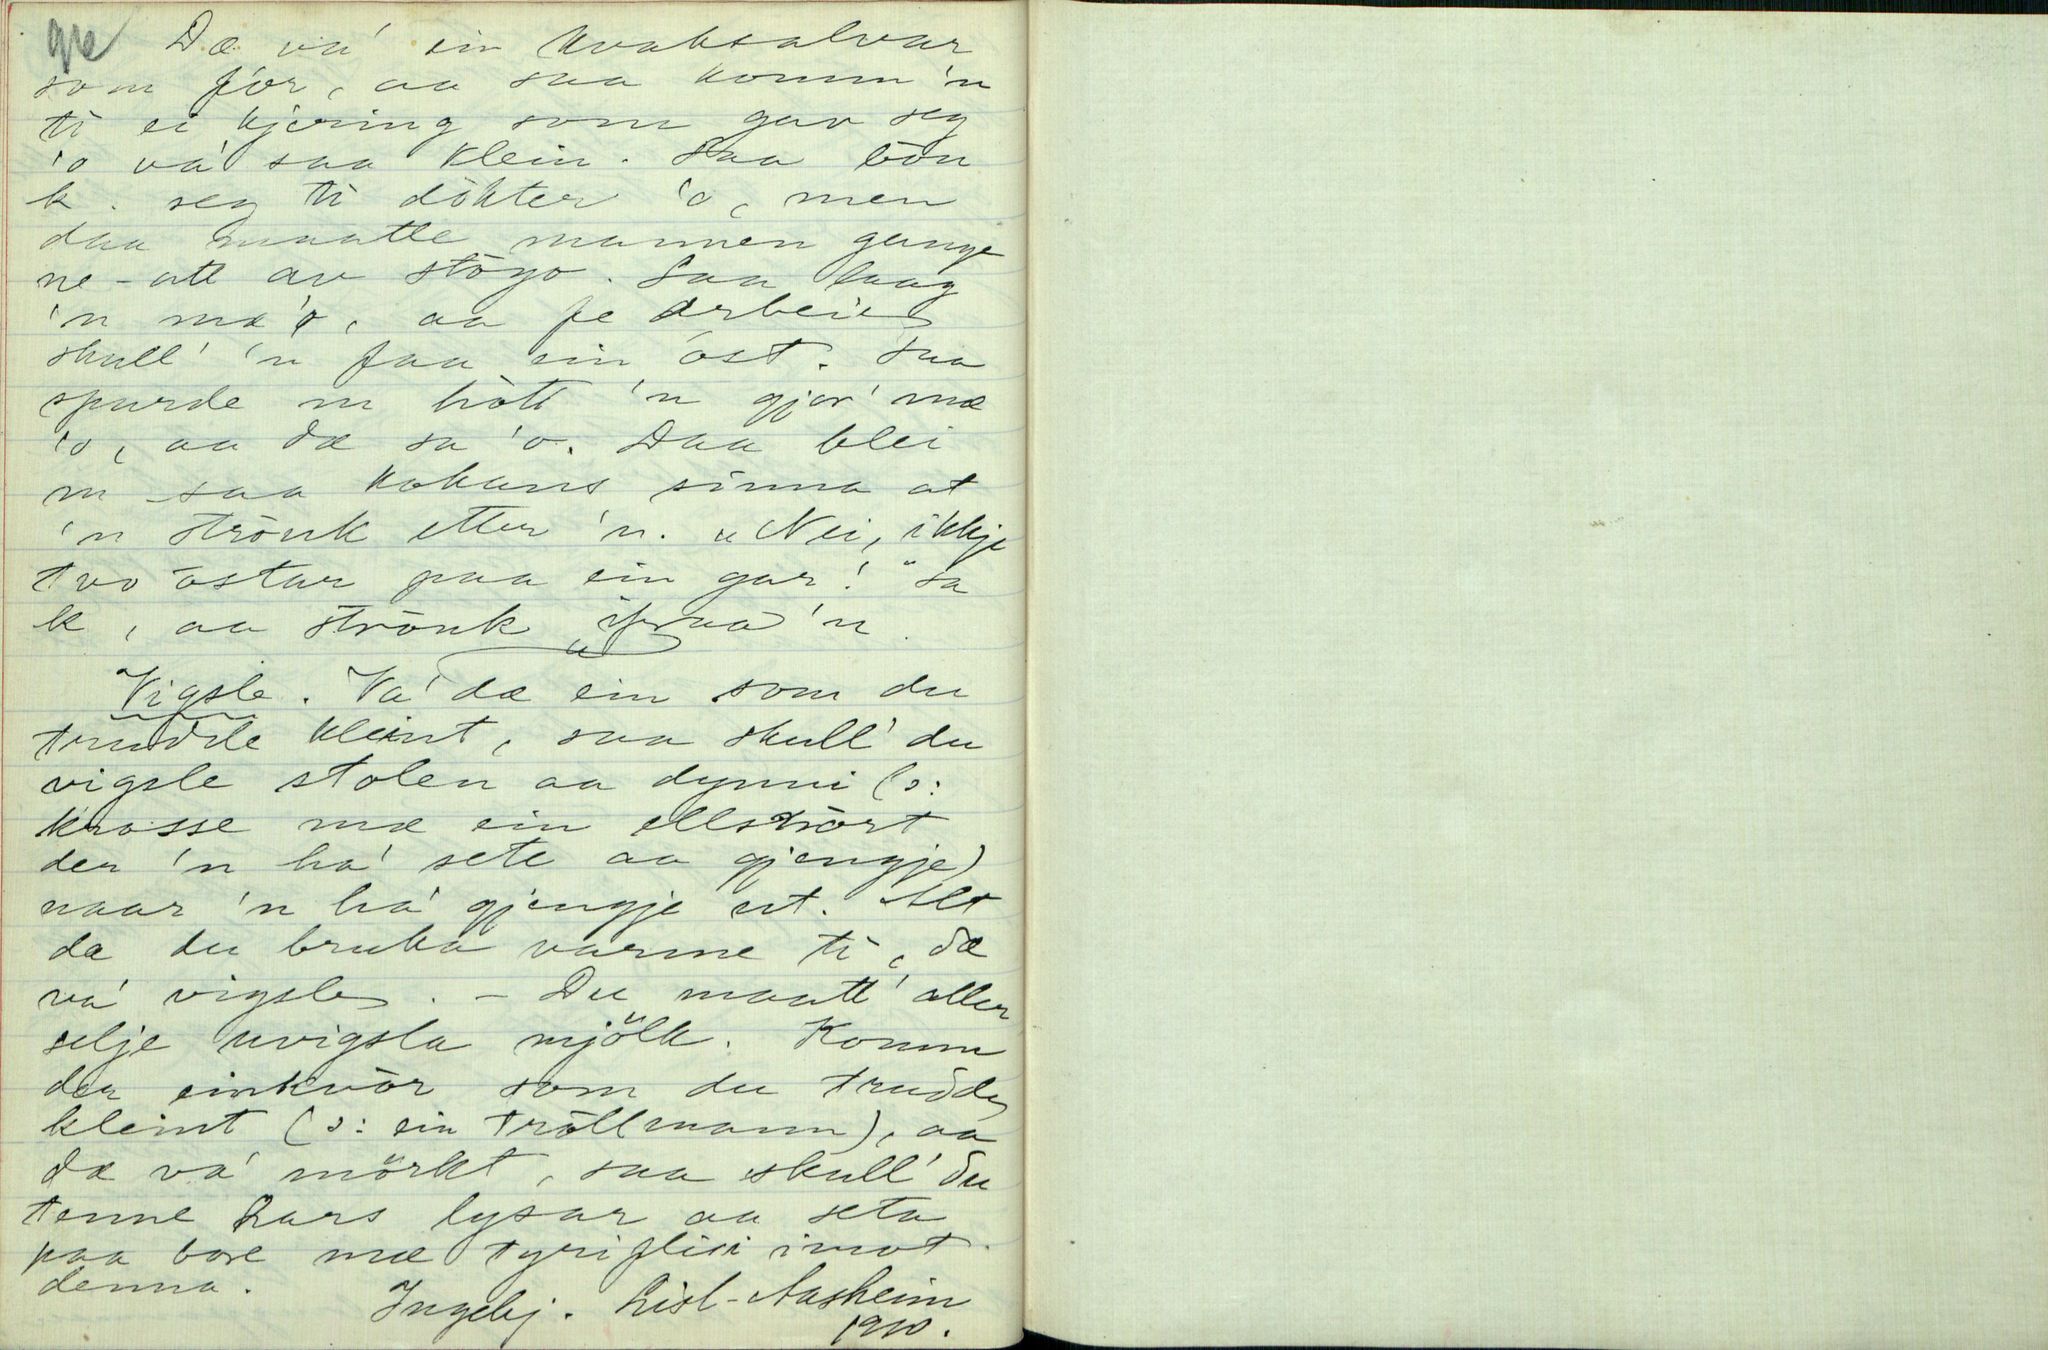 Dæ va' ein kvaksalvar
som fór, aa saa komm 'n
ti ei kjering som gav seg
'o va' saa klein. Saa bòu
k. seg ti dökter 'o, men
daa maatte mannen gange
ne-att av stögo. Saa laag
'n mæ 'o, aa fe arbeie
skull' 'n faa ein ost. Saa
spurde m hòtt 'n gjor' mæ
'o, aa dæ sa 'o. Daa blei
m saa kokans sinna at
'n strauk etter 'n. "Nei, ikkje
tvo ostar paa ein gar!" sa
k, aa strauk ifraa 'n.
Vigsle. Va' dæ ein som du
trudde kleint, saa skull' du
vigsle stolen aa dynni (ɔ:
krosse mæ ein ellskòrt
der 'n ha' sete aa gjengje)
naar 'n ha' gjengje ut. Alt
da du bruka varme ti, dæ
va' vigsle. - Du maatt' aller
selje uvigsla mjölk. Komm
der einkvòr som du trudde
kleint (ɔ: ein tròllmann), aa
dæ va' mörkt, saa skull' du
tenne lysar aa seta
paa bore mæ tyriflisi imot
denna.
Ingebj. Lisl-Aasheim
1910.